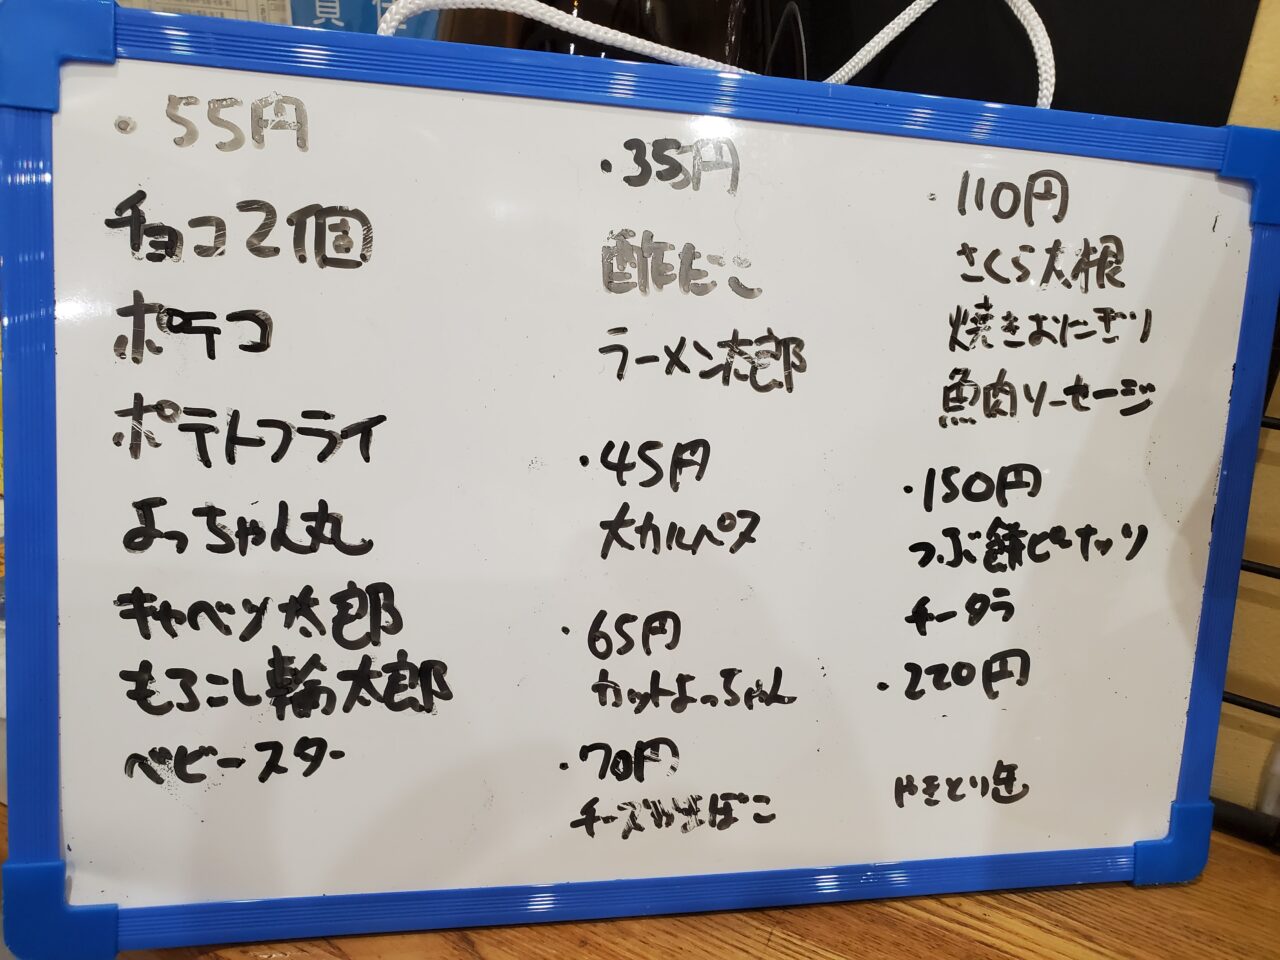 ・55円
チョコ2個
ポテコ
ポテトフライ
よっちゃん丸
キャベツ太郎
もろこし輪太郎
ベビースター
・35円
酢だこ
ラーメン太郎
・45円
大カルパス
・65円
カットよっちゃん
・70円
チーズかまぼこ
・110円
さくら大根
焼きおにぎり
魚肉ソーセージ
・150円
つぶ餅ピーナッツ
チータラ
・220円
やきとり缶